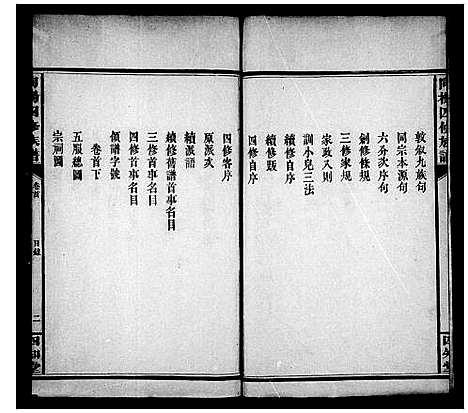 敦敘九族句
同宗本源句
六分次序句
創修條規
三修家規
家政八則
訓小兒三法
續修自序
續修跋
四修自序
四修客序
原派㳄
續派語
續修舊譜首事名目
三修首事名目
四修首事名目
領譜字號
卷首下
五服總圖
宗祠圖
卷首
目錄
二